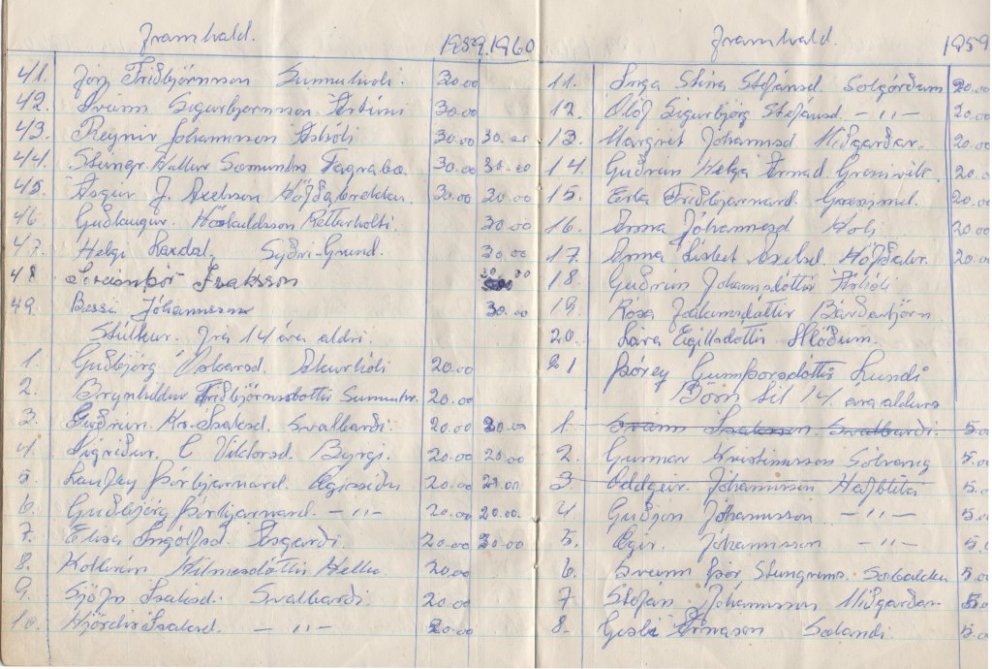 Framhald. 1959. 1960
41. Jón Friðbjörnsson Sunnuhvoli. 30.00
42. Sveinn Sigurbjörnsson Ártúni 30.00
43. Reynir Jóhannsson Áshóli 30.00 30.00
44. Steingr. Hallur Sæmunds Fagrabæ. 30.00 30.00
45. Ásgeir J. Axelsson Höfðabrekku. 30.00 30.00
46. Guðlaugur. Höskuldsson Réttarholti 30.00
47. Helgi Laxdal. Syðri-Grund. 30.00
48 Ísaksson 30.00
49. Bessi Jóhannesson 30.00
Stúlkur. frá 14 ára aldri.
1. Guðbjörg Óskarsd. 20.00
2. Brynhildur Friðbjörnsdóttir Sunnuhv. 20.00
3. Guðrún. Kr. Ísaksd. Svalbarði. 20.00 20.00
4. Sigríður. C Viktorsd. Byrgi. 20.00 20.00
5. Laufey Þórbjarnard. Ægissíðu 20.00 20.00
6. Guðbjörg Þórbjarnard. -"- 20.00 20.00.
7. Elísa Ingólfsd. Ásgarði. 20.00 20.00
8. Kolbrún Hilmarsdóttir Hellu. 20.00
9. Sjöfn Ísaksd. Svalbarði. 20.00
10. Hjördís Ísaksd. -"- 20.00
Framhald. 1959
11. Inga Stína Stefánsd. Sólgörðum 20.00
12. Ólöf Sigurbjörg Stefánsd. -"- 20.00
13. Margrét Jóhannsd Miðgarðar. 20.00
14. Guðrún Helga Árnad. Grenivík. 20.00
15. Erla Friðbjarnard. 20.00
16. Anna Jóhannesd Hóli 20.00
17. Anna Axelsd. Höfðabr. 20.00
18. Guðrún Jóhannsdóttir Áshóli
19. Rósa Jakumsdóttir Bárðartjörn
20. Lára Egilsdóttir Hlöðum.
21 Þórey Gunnþórsdóttir Lundi
Börn til 14 ára aldurs
1. Sveinn Ísaksson. Svalbarði. 5.00
2. Gunnar Kristinsson Sólvang 5.00
3 Oddgeir. Jóhannsson Hafblik 5.00
4 Guðjón Jóhannsson -"- 5.00
5. Ægir. Jóhannsson -"- 5.00
6 Sveinn Þór Steingríms. 5.00
7 Stefán Jóhannsson Miðgarðar 5.00
8. Gísli Árnason Sælandi. 5.00